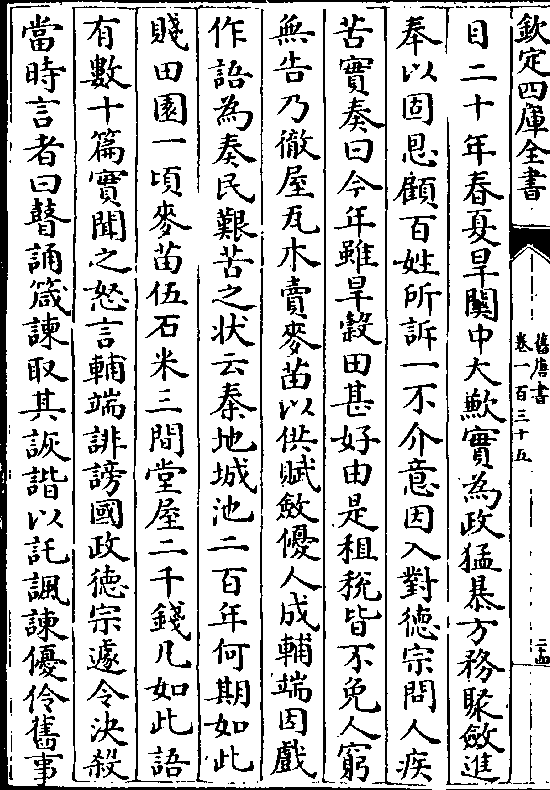 欽定四庫全書
舊唐書
卷一百三十五
二五
目二十年春夏旱關中大歉實為政猛暴方務聚斂進
奉以固恩顧百姓所訴一不介意因入對德宗問人疾
苦實奏曰今年雖旱穀田甚好由是租稅皆不免人窮
無告乃徹屋瓦木賣麥苗以供賦斂優人成輔端因戲
作語為秦民艱苦之狀云秦地城池二百年何期如此
賤田園一頃麥苗伍石米三間堂屋二千錢凡如此語
有數十篇實聞之怒言輔端誹謗國政德宗遽令決殺
當時言者曰瞽誦箴諫取其詼諧以託諷諫優伶舊事